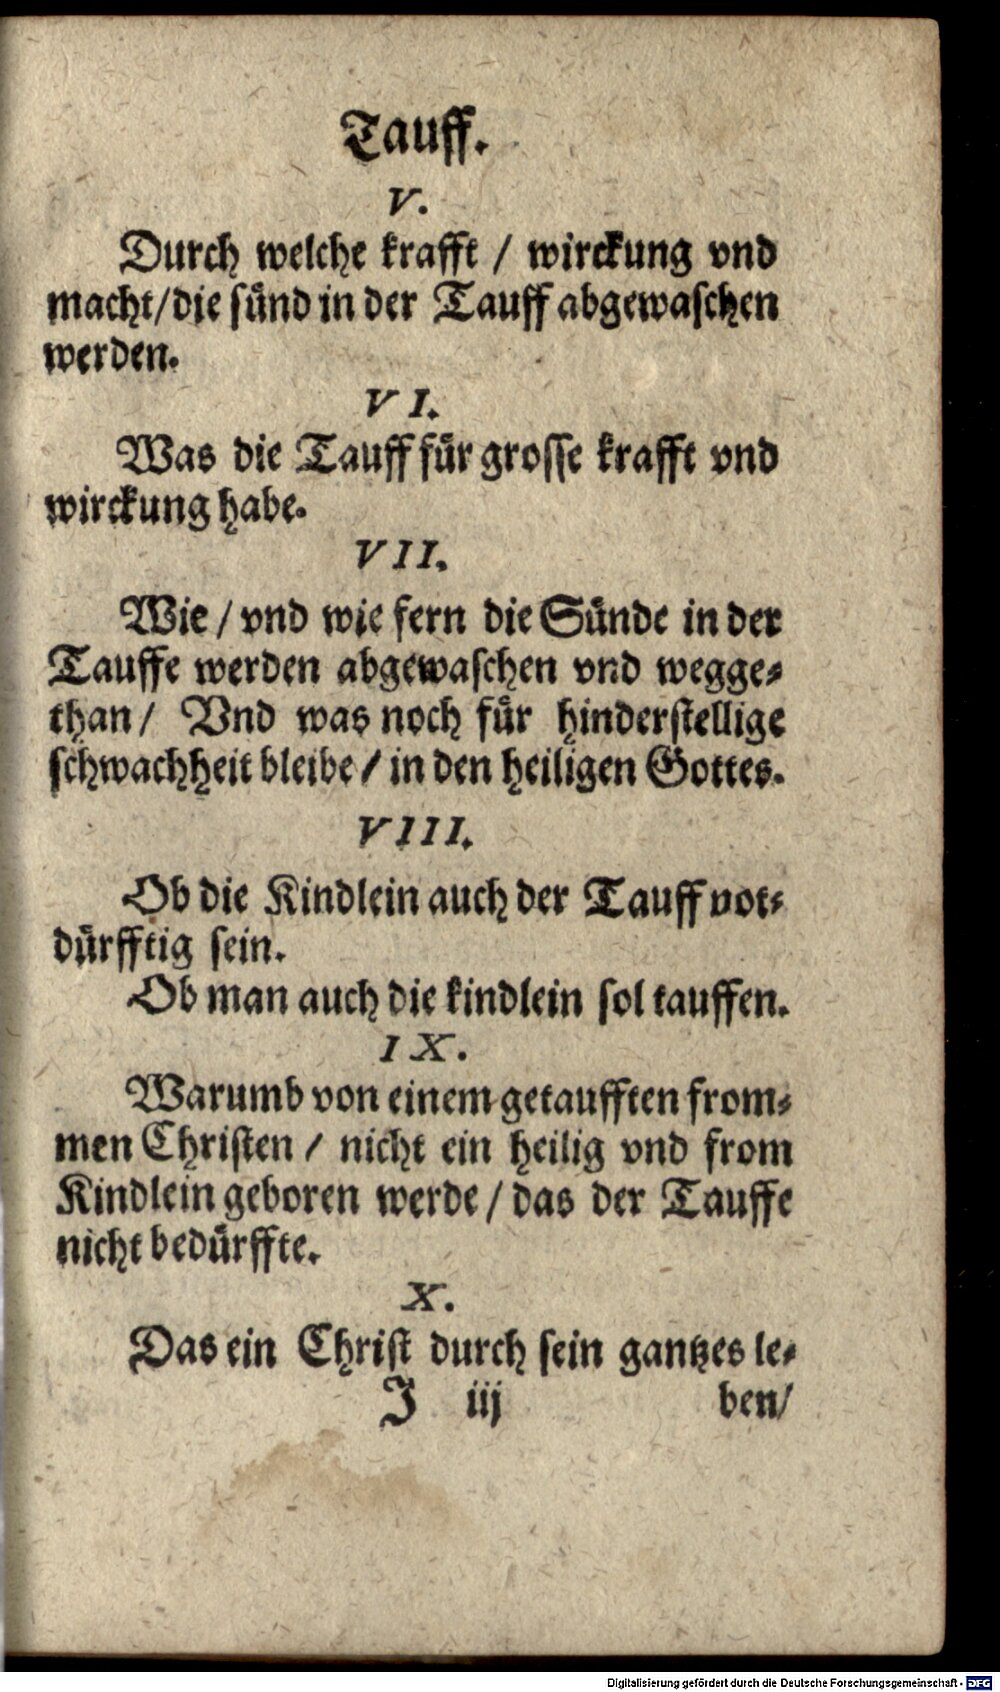 Tauff.
V.
Durch welche krafft / wirckung vnd
macht/die sünd in der Tauff abgewaschen
werden.
VI.
Was die Tauff für grosse krafft vnd
wirckung habe.
VII.
Wie / vnd wie fern die Sünde in der
Tauffe werden abgewaschen vnd wegge-
than / Vnd was noch für hinderstellige
schwachheit bleibe / in den heiligen Gottes.
VIII.
Ob die Kindlein auch der Tauff not-
dürfftig sein.
Ob man auch die kindlein sol tauffen.
IX.
Warumb von einem getaufften from-
men Christen / nicht ein heilig vnd from
Kindlein geboren werde / das der Tauffe
nicht bedürffte.
X.
Das ein Christ durch sein gantzes le-
J iij ben/
Digitalisierung gefördert durch die Deutsche Forschungsgemeinschaft - DFG